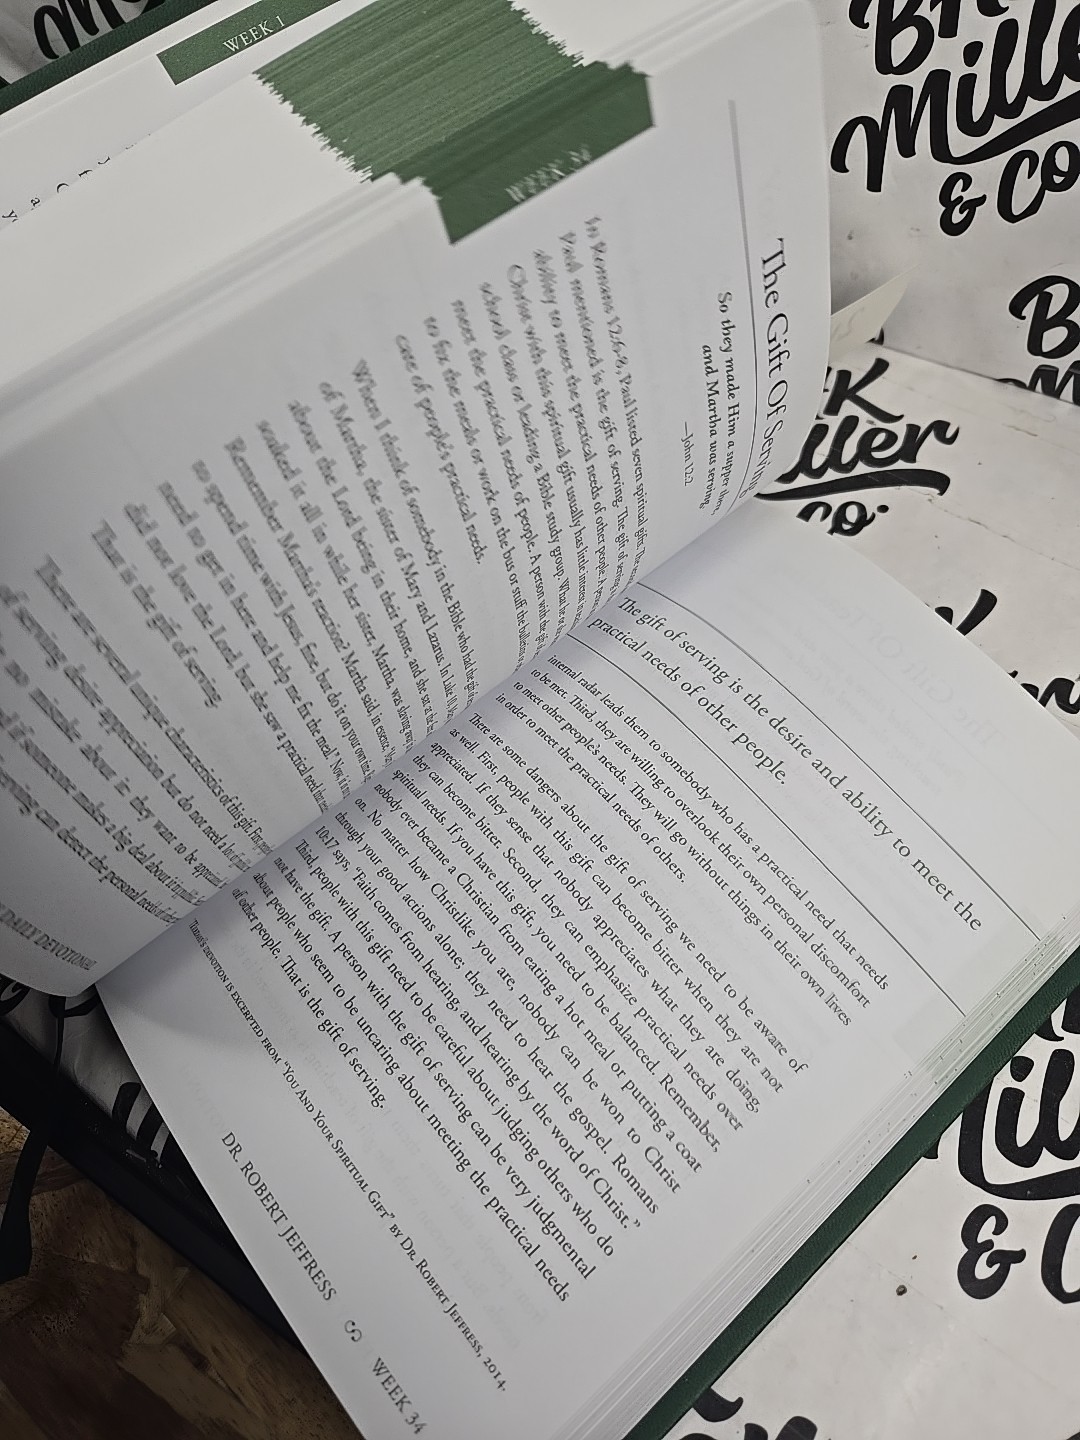 WEEK 1
WEEK 34
The Gift Of Serving
So they made Him a supper there,
and Martha was serving
—John 12:2
In Romans 12:6-8, Paul listed seven spiritual gifts. The
Paul mentioned is the gift of serving. The gift of serving
ability to meet the practical needs of other people. A person
Christ with this spiritual gift usually has little interest in
school class or leading a Bible study group. What he or she
meet the practical needs of people. A person with the gift of
to fix the meals or work on the bus or stuff the bulletins
care of people's practical needs.
When I think of somebody in the Bible who had the gift of
of Martha, the sister of Mary and Lazarus. In Luke 10, Mary
about the Lord being in their home, and she sat at the
soaked it all in while her sister, Martha, was slaving away
Remember Martha's reaction? Martha said, in essence,
to spend time with Jesus, fine, but do it on your own time.
need to get in here and help me fix the meal!" Now, it
did not love the Lord, but she saw a practical need
That is the gift of serving.
There are several unique characteristics of this gift. First,
of serving desire appreciation but do not need a lot of
no muscle about it; they want to be appreciated
if someone makes a big deal about it in public
serving can detect the personal needs of
DAILY DEVOTIONAL
The gift of serving is the desire and ability to meet the
practical needs of other people.
internal radar leads them to somebody who has a practical need that needs
to be met. Third, they are willing to overlook their own personal discomfort
to meet other people's needs. They will go without things in their own lives
in order to meet the practical needs of others.
There are some dangers about the gift of serving we need to be aware of
as well. First, people with this gift can become bitter when they are not
appreciated. If they sense that nobody appreciates what they are doing,
they can become bitter. Second, they can emphasize practical needs over
spiritual needs. If you have this gift, you need to be balanced. Remember,
nobody ever became a Christian from eating a hot meal or putting a coat
on. No matter how Christlike you are, nobody can be won to Christ
through your good actions alone; they need to hear the gospel. Romans
10:17 says, "Faith comes from hearing, and hearing by the word of Christ."
Third, people with this gift need to be careful about judging others who do
not have the gift. A person with the gift of serving can be very judgmental
about people who seem to be uncaring about meeting the practical needs
of other people. That is the gift of serving.
Today's devotion is excerpted from "You And Your Spiritual Gift" by Dr. Robert Jeffress, 2014.
DR. ROBERT JEFFRESS WEEK 34
Miller
& Co
Miller
& Co.